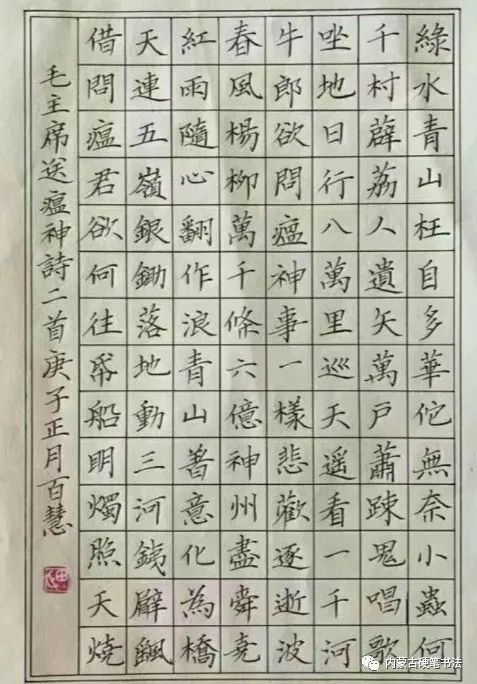 綠水青山枉自多華佗無奈小蟲何
千村薜荔人遺矢萬戶蕭踈鬼唱歌
坐地日行八萬里巡天遥看一千河
牛郎欲問瘟神事一樣悲歡逐逝波
春風楊柳萬千條六億神州盡舜堯
紅雨隨心翻作浪青山著意化為橋
天連五嶺銀鋤落地動三河銕臂颻
借問瘟君欲何往帋船明燭照天燒
毛主席送瘟神詩二首庚子正月百慧
内蒙古硬笔书法